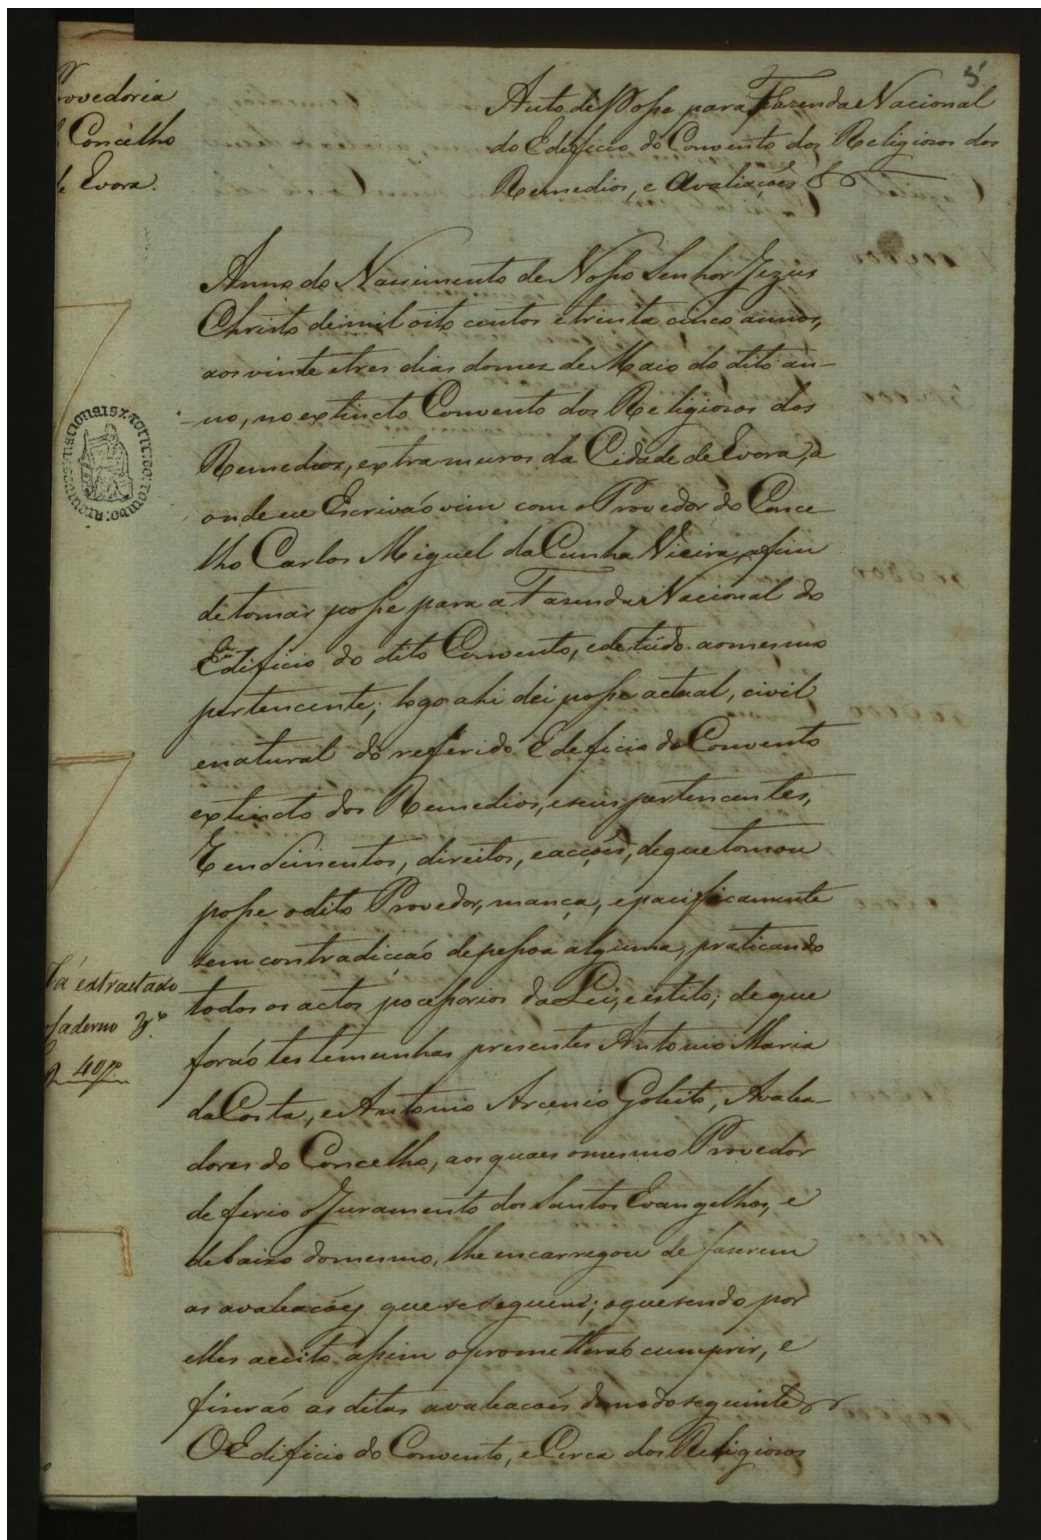 5
Provedoria
Concelho
de Evora.
Auto de Posse para a Fazenda Nacional
do Edeficio do Convento dos Religiosos dos
Remedios, e Avaliaçoẽs
Anno do Nascimento de Nosso Senhor Jezus
Christo de mil oito centos e trinta cinco annos,
aos vinte e tres dias do mez de Maio do dito an-
no, no extincto Convento dos Religiosos dos
Remedios, extramuros da Cidade de Evora, a
onde eu Escrivaõ vim com o Provedor do Conce-
lho Carlos Miguel da Cunha Vieira, afim
de tomar posse para a Fazenda Nacional do
Edificio do dito Convento, e de tudo ao mesmo
pertencente; logo ahi dei posse actual, civil
e natural do referido Edeficio do Convento
extincto dos Remedios, e seus pertencentes,
Rendimentos, direitos, e acçoẽs, de que tomou
posse o dito Provedor, mança, e pacificamente
sem contradicçaõ de pessoa alguma, praticando
todos os actos pocessorios da Lei, e estilo; de que
foraõ testemunhas presentes Antonio Maria
da Costa, e Antonio Arcenio Goleito, Avalia-
dores do Concelho, aos quaes o mesmo Provedor
deferio o Juramento dos Santos Evangelhos, e
debaixo do mesmo, lhe encarregou de fazerem
as avaliaçoẽs que se seguem; o que sendo por
elles aceito assim o prometteraõ cumprir, e
fizeraõ as ditas avaliacoẽs do modo seguinte
O Edificio do Convento, e Cerca dos Religiosos
Já extractado
Caderno 3º
40
ARQUIVOS NACIONAIS TORRE DO TOMBO